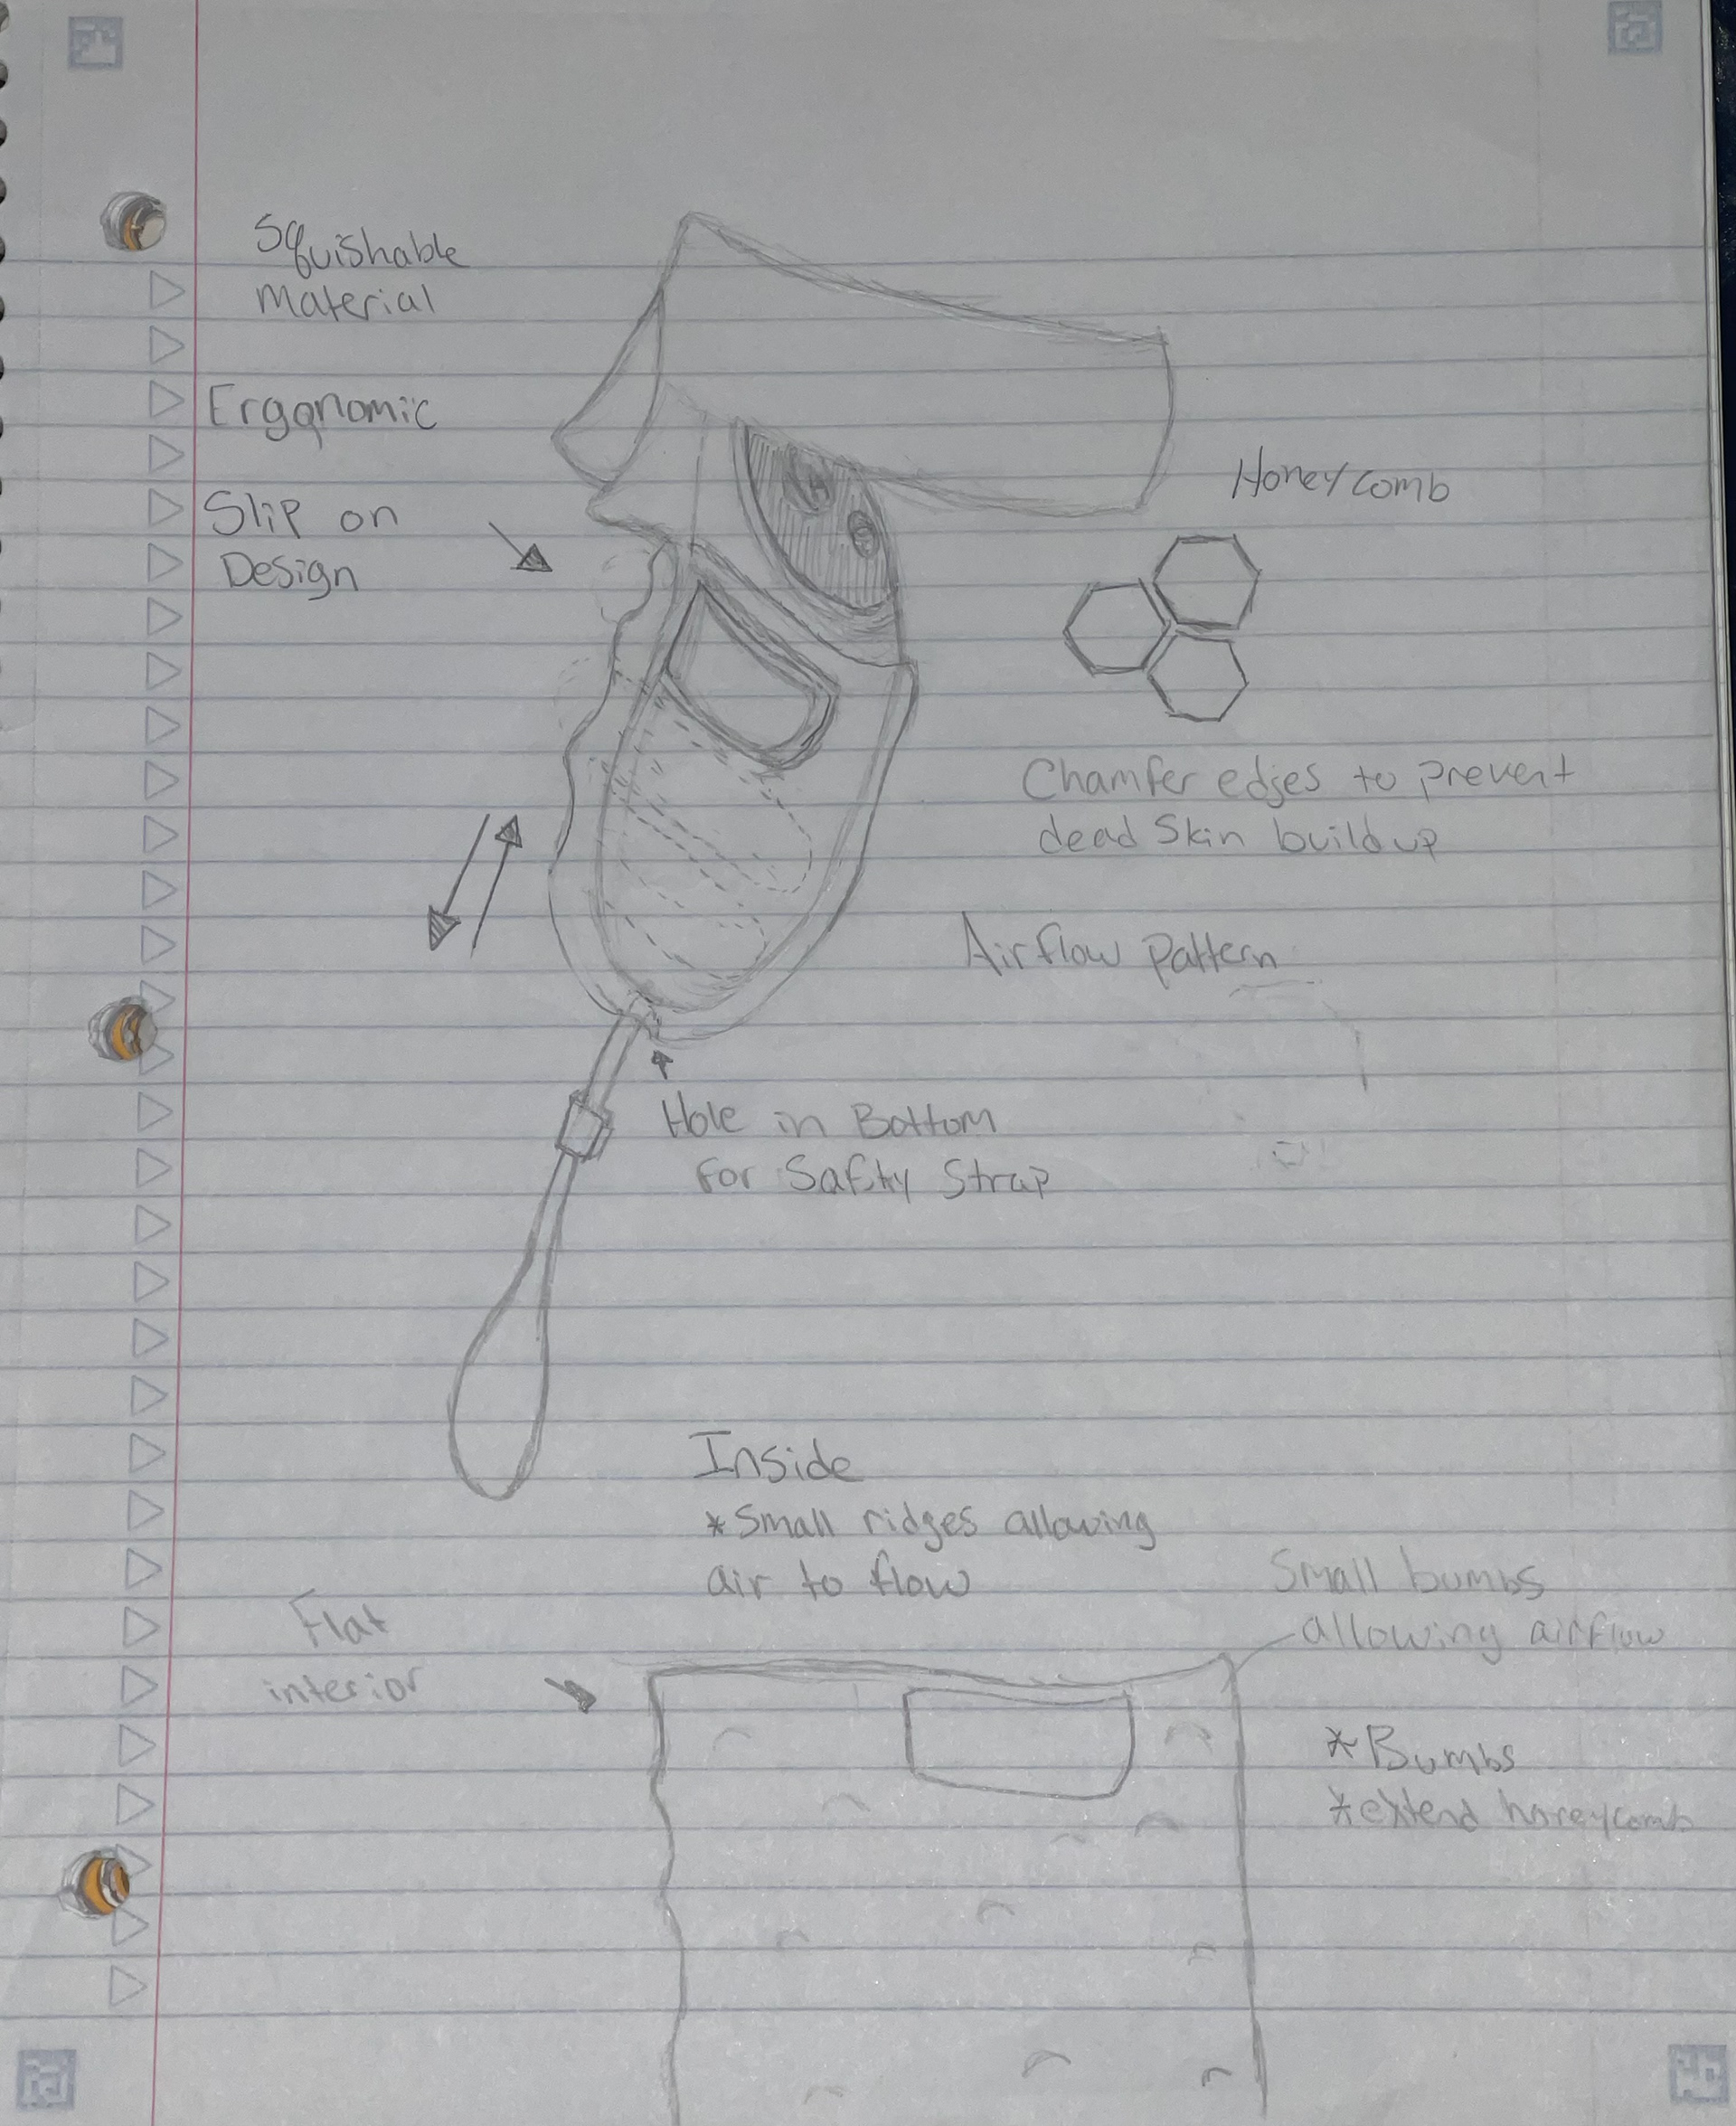 Squishable
Material
Ergonomic
Slip on
Design
Honeycomb
Chamfer edges to prevent
dead skin buildup
Airflow pattern
Hole in Bottom
For Safity Strap
Inside
*Small ridges allowing
air to flow
Flat
interior
Small bumbs
allowing airflow
*Bumbs
*extend honeycomb